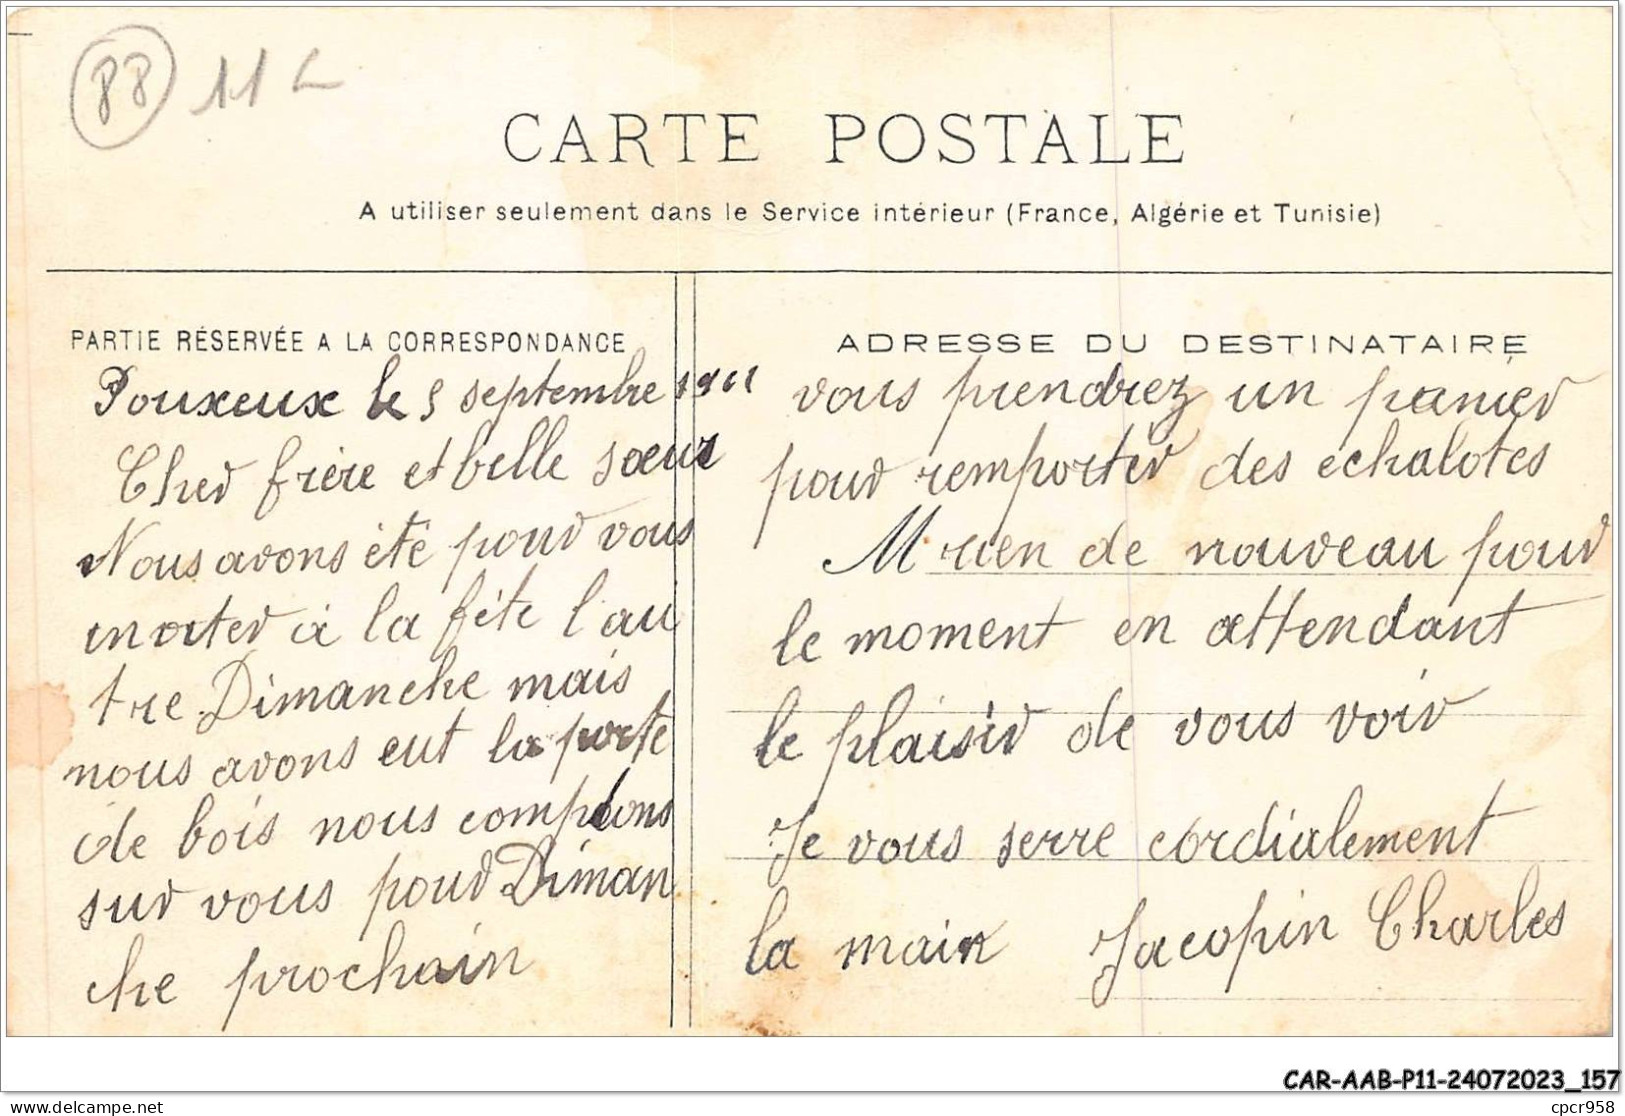 88 11
CARTE POSTALE
A utiliser seulement dans le Service intérieur (France, Algérie et Tunisie)
PARTIE RÉSERVÉE A LA CORRESPONDANCE
Pouxeux le 5 septembre 1911
Cher frère et belle sœur
Nous avons été pour vous
inviter à la fête l'au
tre Dimanche mais
nous avons eut la porte
de bois nous comptons
sur vous pour Diman
che prochain
ADRESSE DU DESTINATAIRE
vous prendrez un panier
pour remporter des echalotes
rien de nouveau pour
le moment en attendant
le plaisir de vous voir
Je vous serre cordialement
la main Jacopin Charles
CAR-AAB-P11-24072023_157
delcampe.net
cpcr958